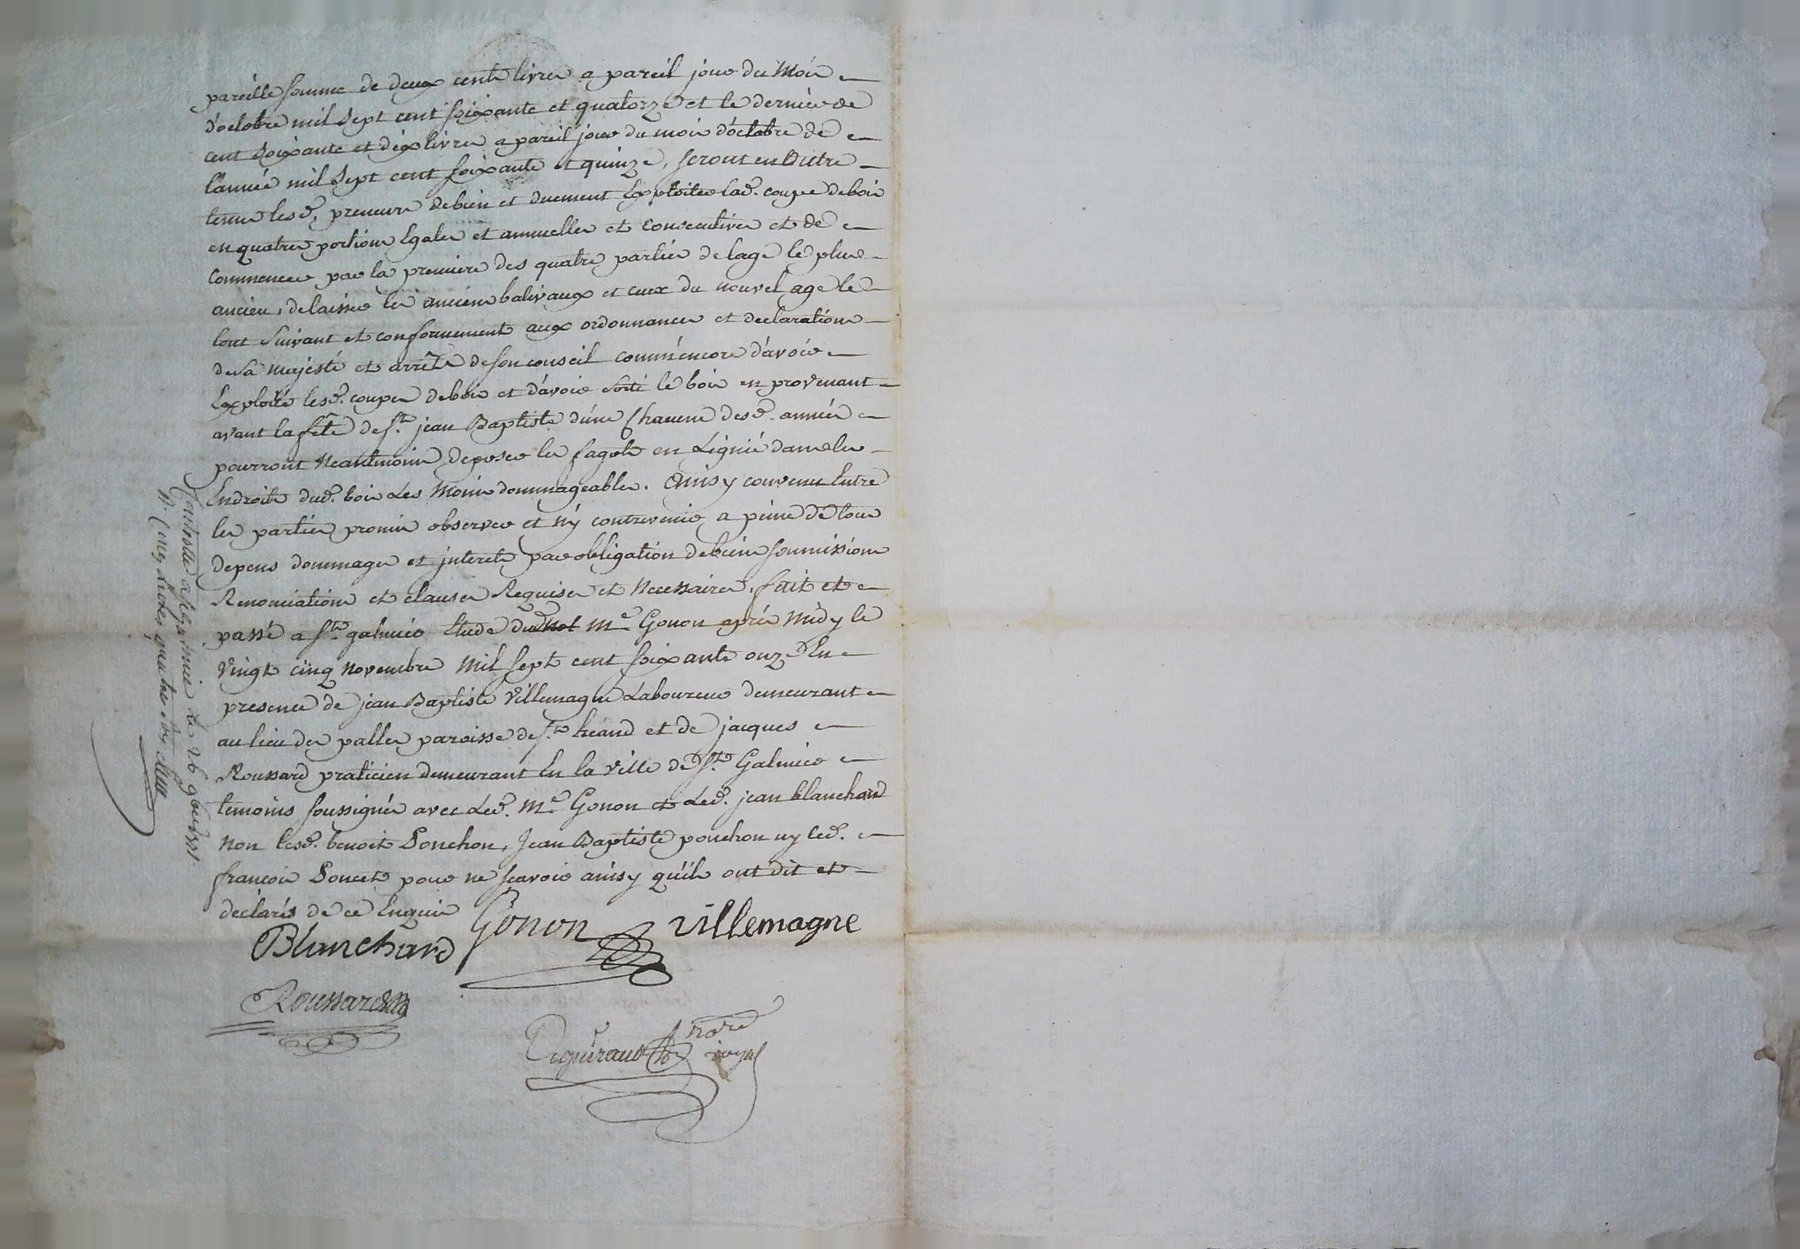 pareille somme de deux cents livres a pareil jour du mois
d'octobre mil sept cent soixante et quatorze et le dernier de
cent soixante et dix livres a pareil jour du mois d'octobre de
l'année mil sept cent soixante et quinze, seront en outre
tenus lesd. preneurs de bien et duement exploiter lad. coupe de bois
en quatre portions Egales et annuelles et Consecutives et de
Commencer par la premiere des quatre parties de lage le plus
ancien, delaisser les anciens balivaux et ceux du nouvel age le
tout suivant et conformement aux ordonnances et declarations
de sa majesté et arrêts de son conseil comm'encore d'avoir
Exploité lesd. coupes de bois et d'avoir sorti le bois en provenant
avant la fête de st. jean Baptiste d'une Chacune desd. années
pourront Neantmoins deposer les fagots en Lignié dans les
Endroits dud. bois Les Moins dommageables. Ainsy convenu Entre
les parties promis observer et n'y contrevenir a peine de tous
depens dommages et jnterets par obligation de biens soumissions
Renonciations et clauses Requises et Necessaires. fait et
passé a st. galmier Etude dud. Me Gonon après Midy le
Vingt cinq Novembre Mil sept cent soixante onze En
presence de jean Baptiste Villemagne Laboureur demeurant
au lieu des palles paroisse de st. heand et de jacques
Roussard praticien demeurant En la Ville de st. Galmier
temoins soussignés avec Led. Me Gonon et Led. jean blanchard
Non lesd. benoit Ponchon, Jean Baptiste ponchon ny led.
françois Poncet pour ne scavoir ainsy qu'ils ont dit et
declarés de ce Enquis
Gonon
Villemagne
Blanchard
Roussard
nore
royal
Controllé a st galmier le 26 9bre 1771
R. Cinq livres, quatre sols